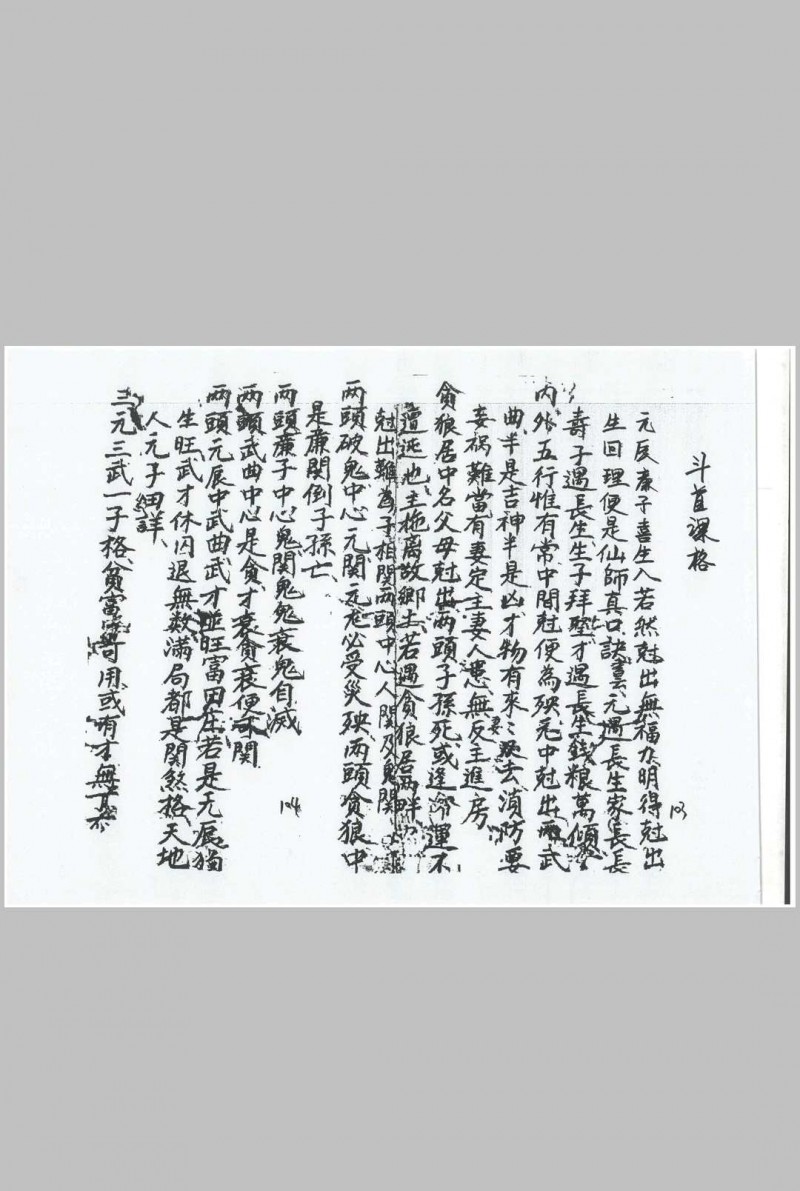 斗首課格
123
元辰廉子喜生入若然尅出無福力明得尅出
生回理便是仙師真口訣元遇長生家長長
壽子遇長生生子拜墅才遇長生錢粮萬傾
内外五行惟有常中間尅便為殃元中尅出兩武
曲半是吉神半是凶才物有來〻要去湏防要
妾禍難當有妻定主妻人患無反主進房
貪狼居中名父母尅出兩頭子孫死或逢命運不
遭迍也主拖离故鄉土若遇貪狼居両畔
尅出難為子相関両頭中心人関及鬼関
両頭破鬼中心元関元尨必受災殃両頭貪狼中
是廉関倒子孫亡
両頭廉子中心鬼関鬼鬼衰鬼自滅
124
両頭武曲中心是貪才衰貪衰便可関
両頭元辰中武曲武才並旺富田庄若是元辰獨
生旺武才休囚退無数滿局都是関煞格天地
人元子田詳
三元三武一子格貧富寄用或有才無